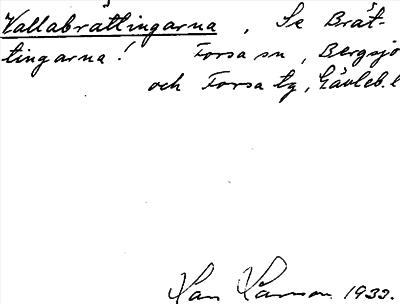 Vallabrättingarna, Se Brät-
tingarna! Forsa sn, Bergsjö
och Forsa tg, Gävleb. l
1933.